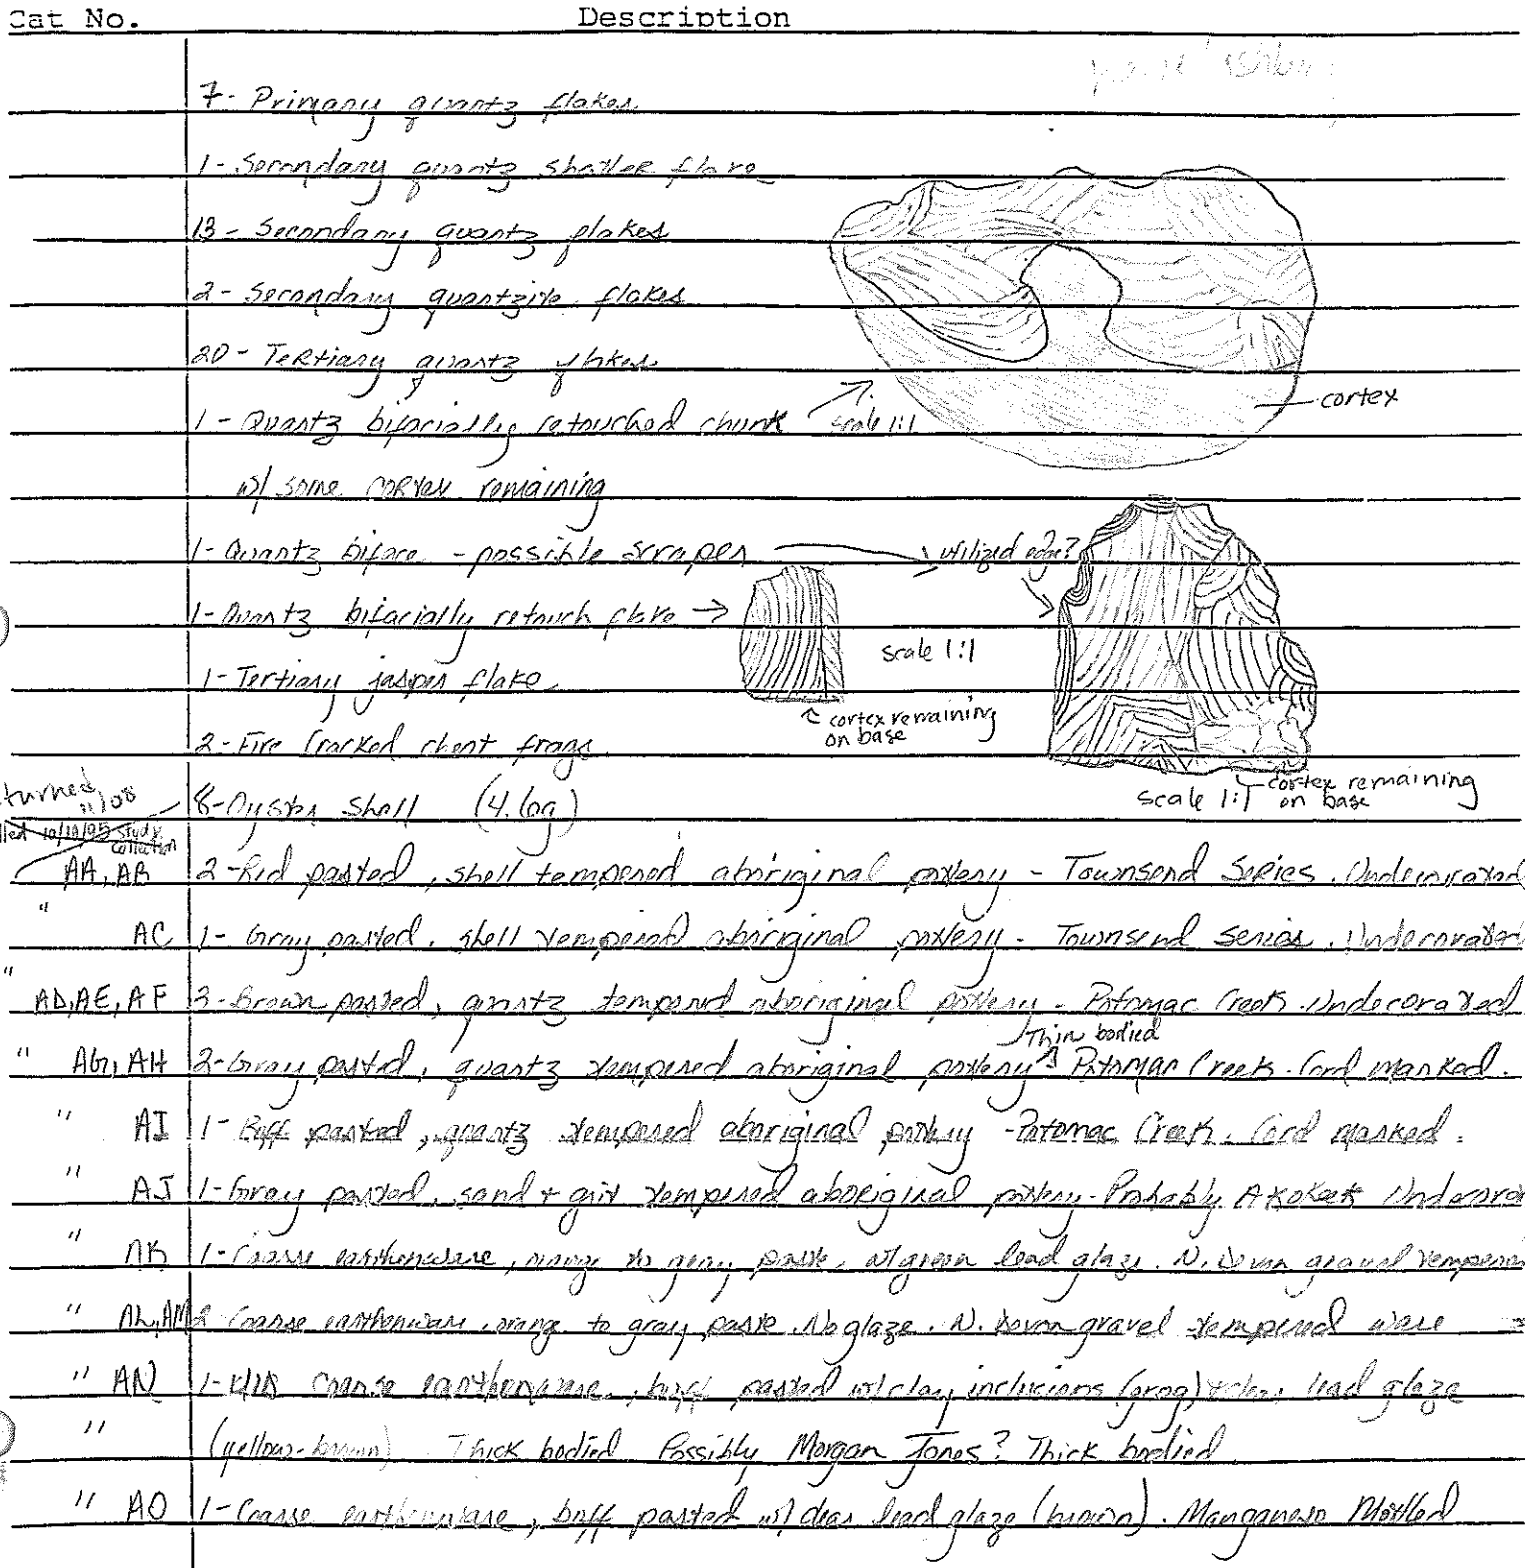 Cat No. Description
7- Primary quartz flakes
1- Secondary quartz shatter flake
13- Secondary quartz flakes
2- Secondary quartzite flakes
20- Tertiary quartz flakes
cortex
1- Quartz bifacially retouched chunk scale 1:1
w/ some cortex remaining
1- Quartz biface - possible scraper utilized edge?
1- Quartz bifacially retouch flake
scale 1:1
1- Tertiary jasper flake
cortex remaining
on base
2- Fire Cracked chert frags.
cortex remaining
scale 1:1 on base
turned 11/08
8- Oyster shell (4.6g)
10/19/95 Study
Collection
AA, AB 2- Red pasted, shell tempered aboriginal pottery - Townsend Series. Undecorated
" AC 1- Gray pasted, shell tempered aboriginal pottery - Townsend Series. Undecorated
" AD, AE, AF 3- Brown pasted, quartz tempered aboriginal pottery - Potomac Creek. Undecorated
Thin bodied
" AG, AH 2- Gray pasted, quartz tempered aboriginal pottery Potomac Creek. Cord marked.
" AI 1- Buff pasted, quartz tempered aboriginal pottery - Potomac Creek. Cord marked.
" AJ 1- Gray pasted, sand + grit tempered aboriginal pottery - Probably Akokeek
" AK 1- Coarse earthenware, orange to gray paste, w/ green lead glaze. N. Devon gravel
" AL, AM 2- Coarse earthenware, orange to gray paste. No glaze. N. Devon gravel tempered ware
" AN 1- Coarse earthenware, buff pasted w/ clay inclusions (grog) lead glaze
" (yellow-brown) Thick bodied Possibly Morgan Jones? Thick bodied
" AO 1- Coarse earthenware, buff pasted w/ clear lead glaze (brown). Manganese Mottled